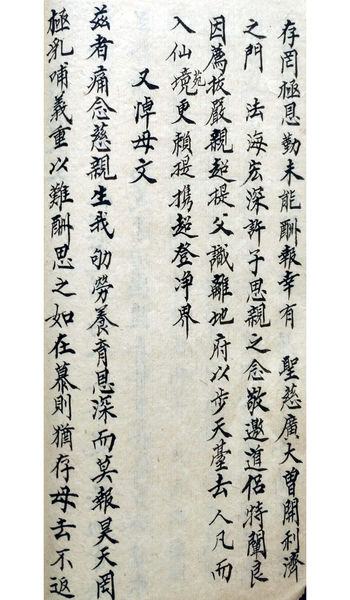 存罔極恩勤未能酬報幸有　聖慈廣大曾開利濟
之門　法海宏深許子思親之念敬邀道侶特闡良
因薦拔嚴親超提父識離地府以步天臺去人凡而
入仙境苑更賴提携超登净界
又悼母文
茲者痛念慈親生我劬勞養育恩深而莫報昊天罔
極乳哺義重以難酬思之如在慕則猶存母去不返